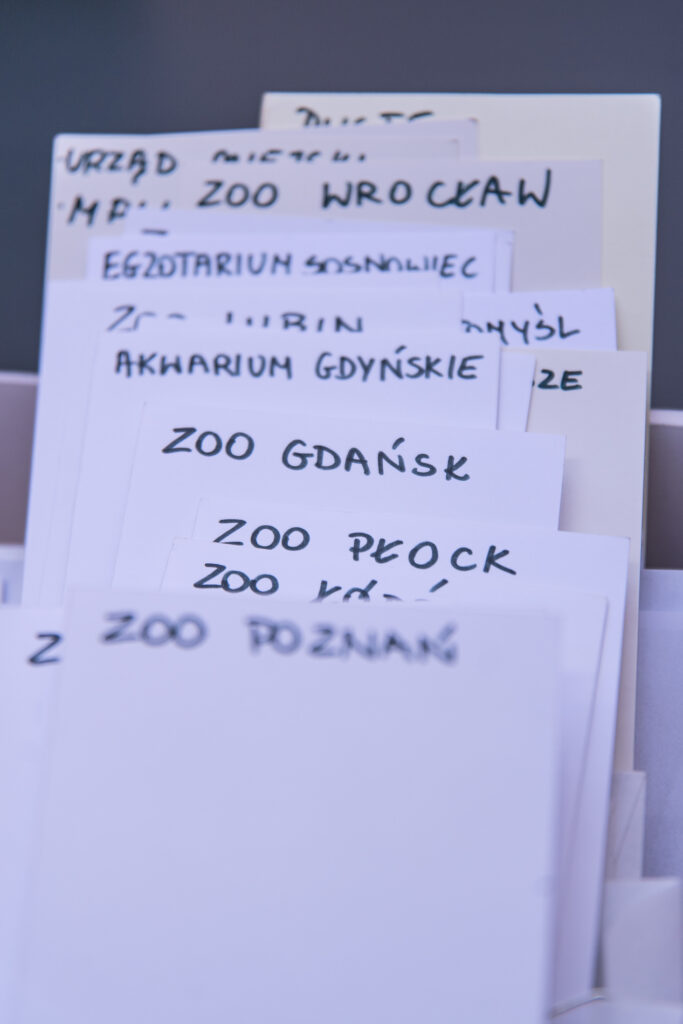 URZĄD
ZOO WROCŁAW
EGZOTARIUM SOSNOWIEC
ZOO LUBIN
AKWARIUM GDYŃSKIE
ZOO GDAŃSK
ZOO PŁOCK
ZOO
ZOO POZNAŃ